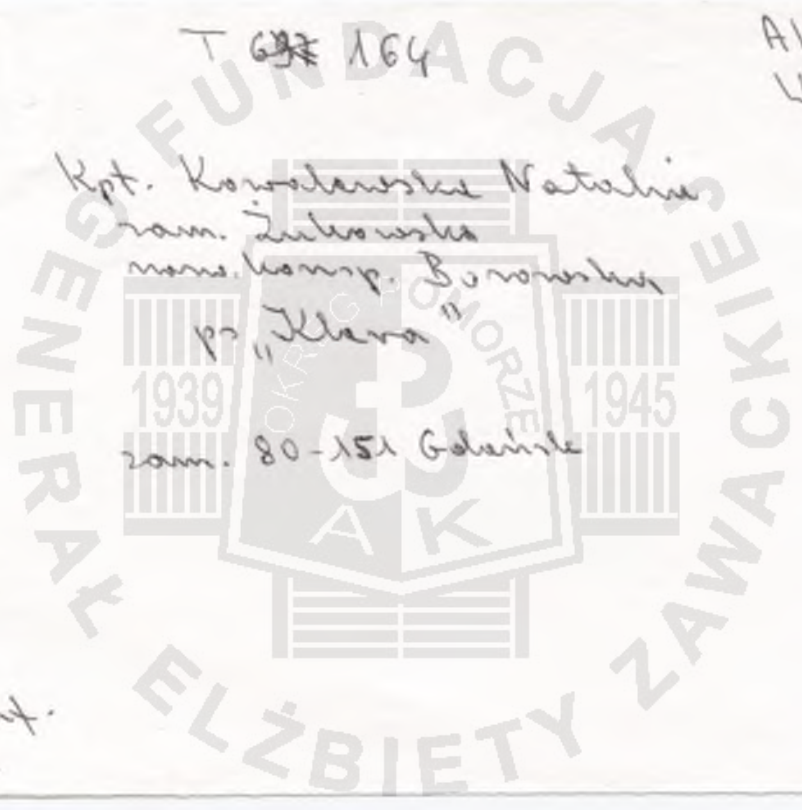 T 164
AK
Kpt. Kowalewska Natalia
zam. Żukowska
nazw. konsp. Borowska
ps „Klara"
zam. 80-151 Gdańsk
FUNDACJA GENERAŁ ELŻBIETY ZAWACKIEJ
OKRĘG POMORZE
1939 1945
AK